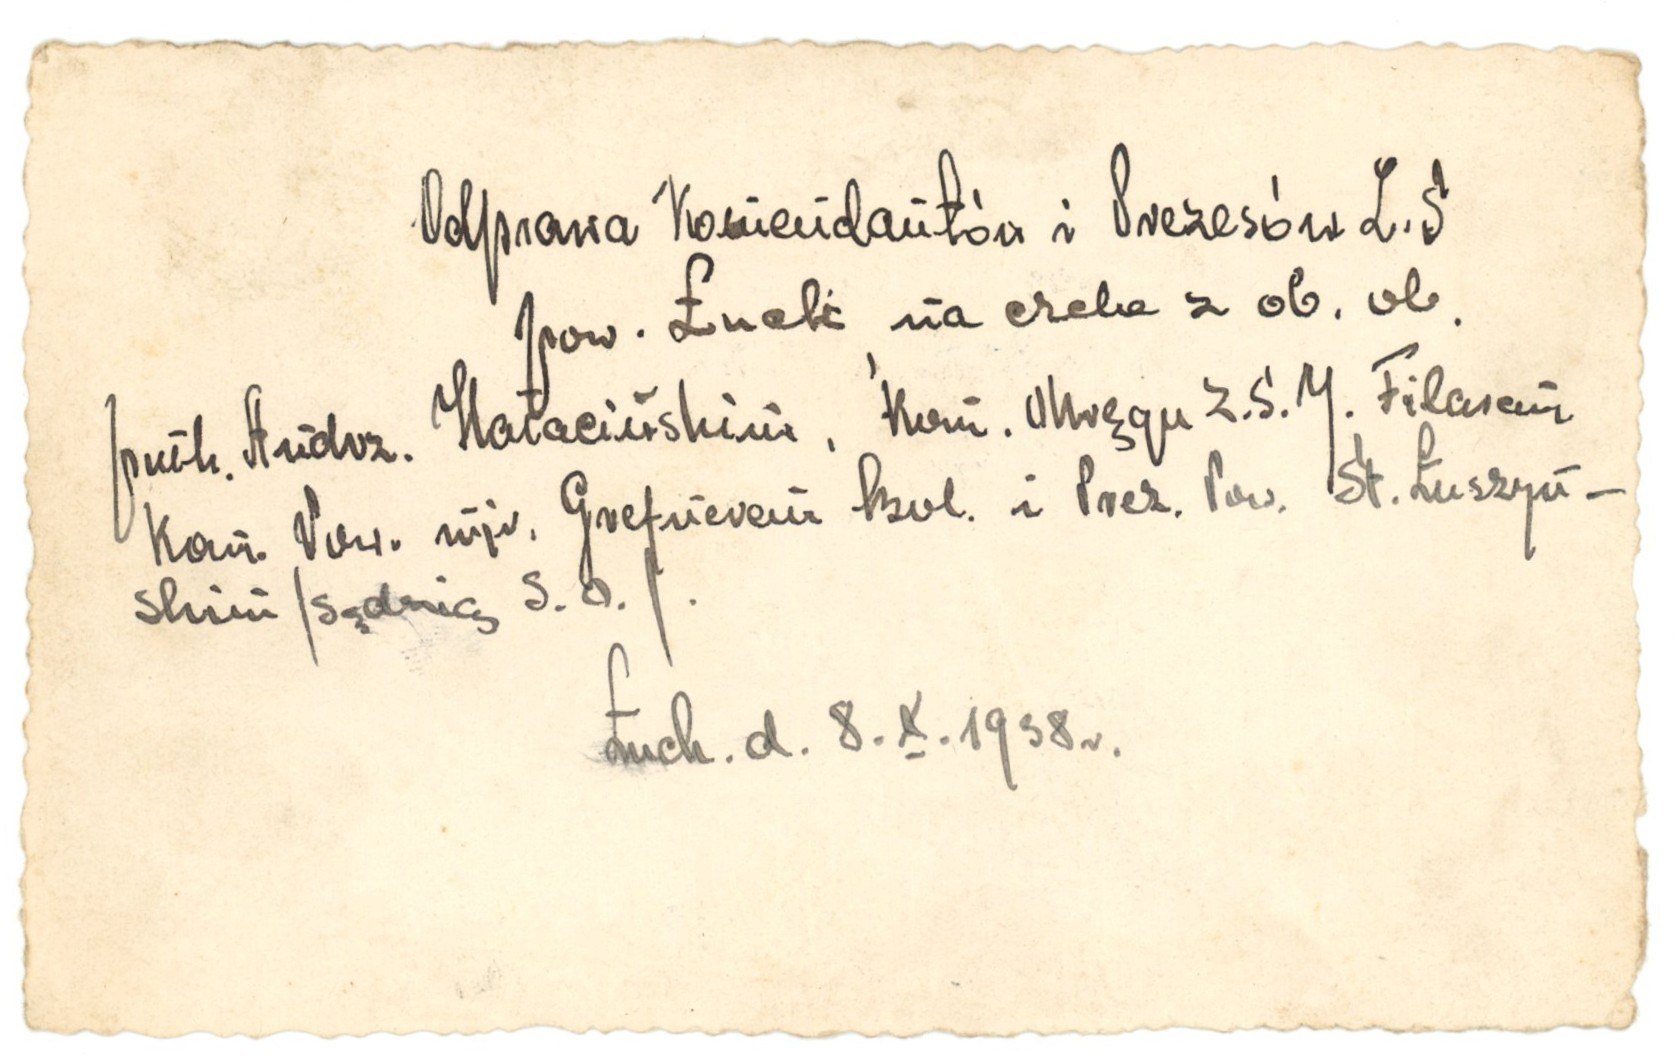 Odprawa Komendantów i Prezesów Z.S
pow. Łuck na czele z ob. ob.
płk. Andrz. , Kom. Okręgu Z.S. M. Filarem
Kom. Pow. mjr. i Prez. Pow. St. Łuszczyń-
skim /sędzią S. O. /.
Łuck. d. 8.X.1938r.